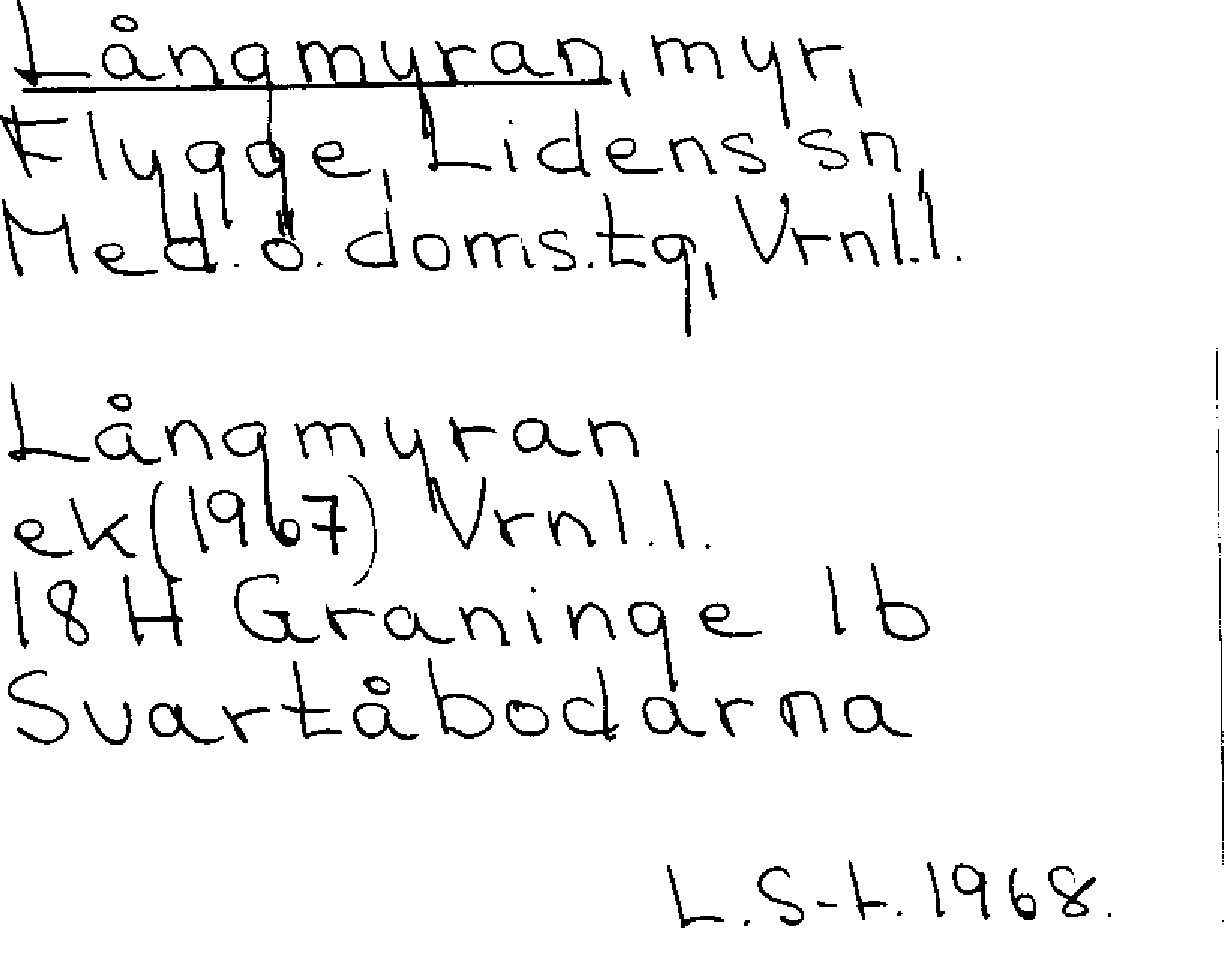 Långmyran, myr,
Flygge, Lidens sn,
Med. ö. doms. tg, Vrnl.l.
Långmyran
ek (1967) Vrnl.l.
18 H Graninge 1b
Svartåbodarna
L. S-t. 1968.